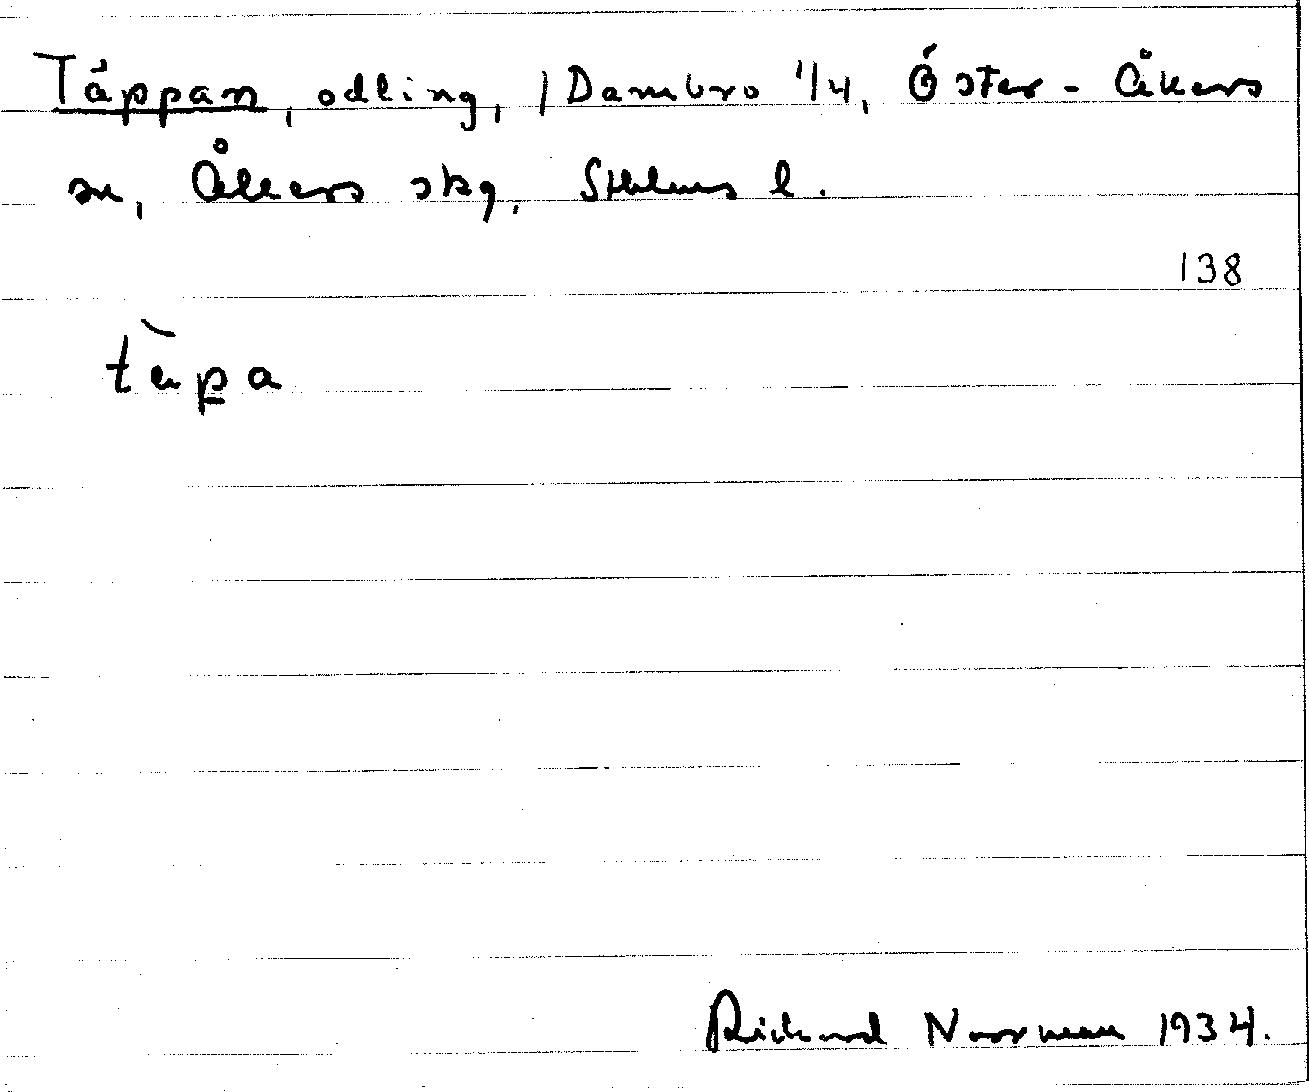 Täppan, odling, 1 Dambro 1/4, Öster-Åkers
sn, Åkers skg, Sthlms l.
138
tèpa
Richard Norrman 1934.